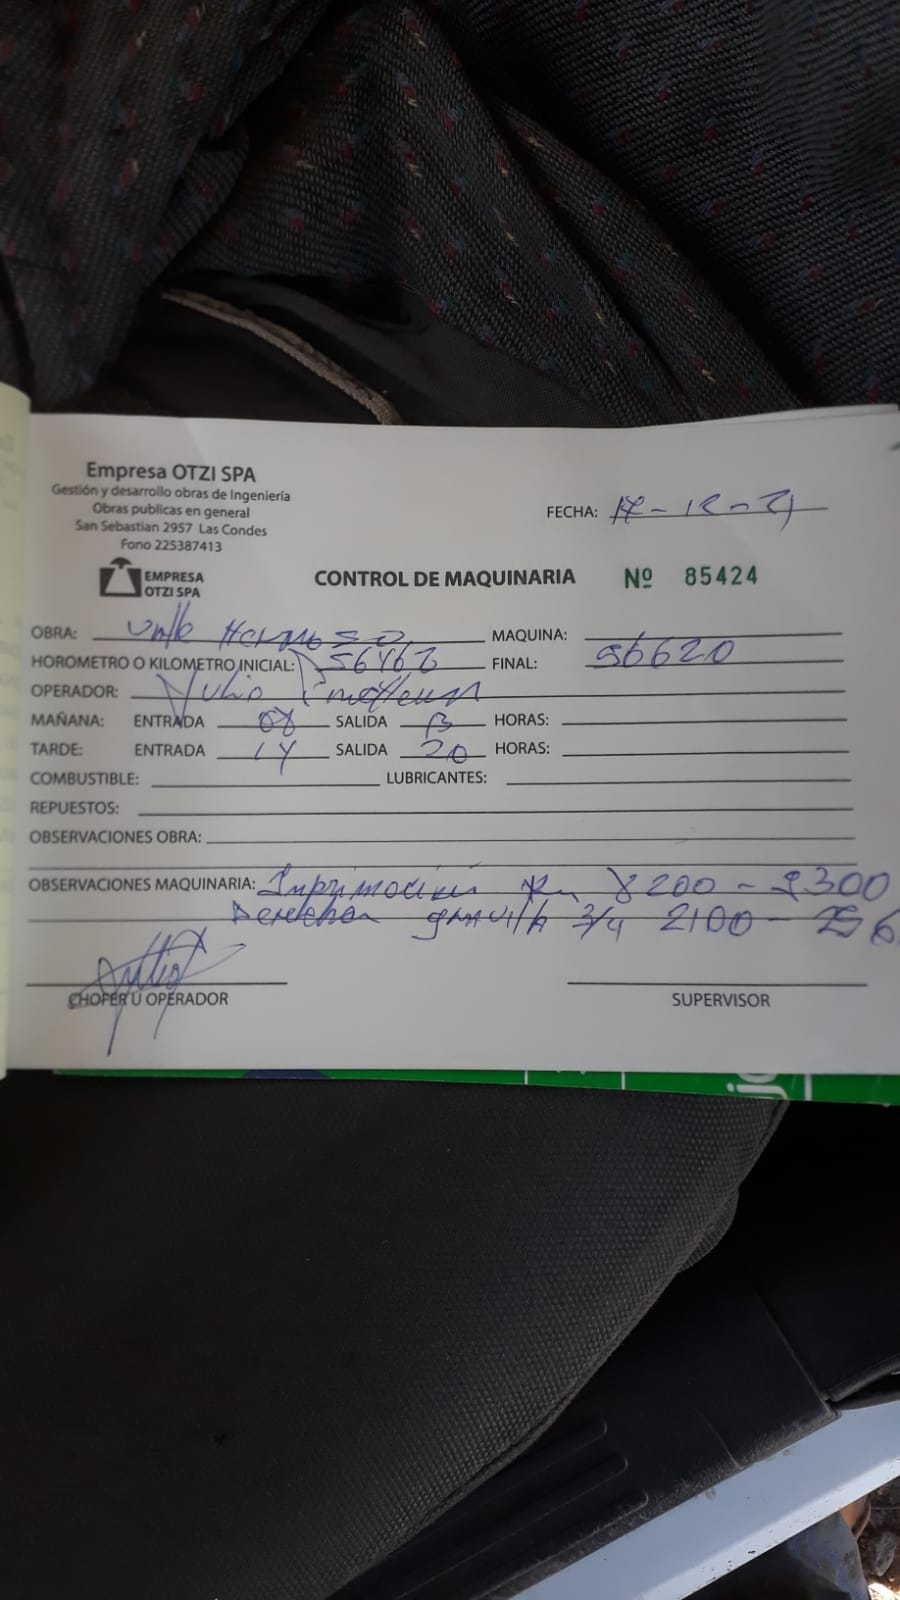 Empresa OTZI SPA
Gestión y desarrollo obras de Ingeniería
Obras publicas en general
San Sebastian 2957 Las Condes
Fono 225387413
EMPRESA
OTZI SPA
FECHA:
CONTROL DE MAQUINARIA Nº 85424
OBRA: Valle Hermoso MAQUINA:
HOROMETRO O KILOMETRO INICIAL: 56462 FINAL: 56620
OPERADOR: Julio
MAÑANA: ENTRADA 08 SALIDA 13 HORAS:
TARDE: ENTRADA 14 SALIDA 20 HORAS:
COMBUSTIBLE: LUBRICANTES:
REPUESTOS:
OBSERVACIONES OBRA:
OBSERVACIONES MAQUINARIA: Imprimación Km 8200 - 9300
Derecha gravilla 3/4 2100 -
CHOFER U OPERADOR SUPERVISOR